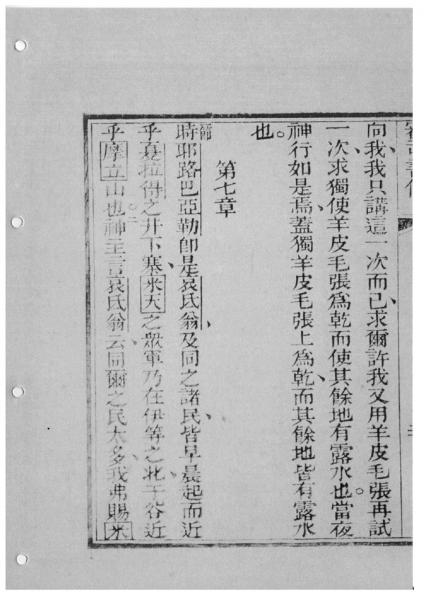 向我我只講這一次而已求爾許我又用羊皮毛張再試
一次求獨使羊皮毛張爲乾而使其餘地有露水也當夜
神行如是焉蓋獨羊皮毛張上爲乾而其餘地皆有露水
也
第七章
時耶路巴亞勒即是氏翁及同之諸民皆早晨起而近
乎拉得之井下塞米天之眾軍乃在伊等之北于谷近
乎摩立山也神主言氏翁云同爾之民太多我弗賜米